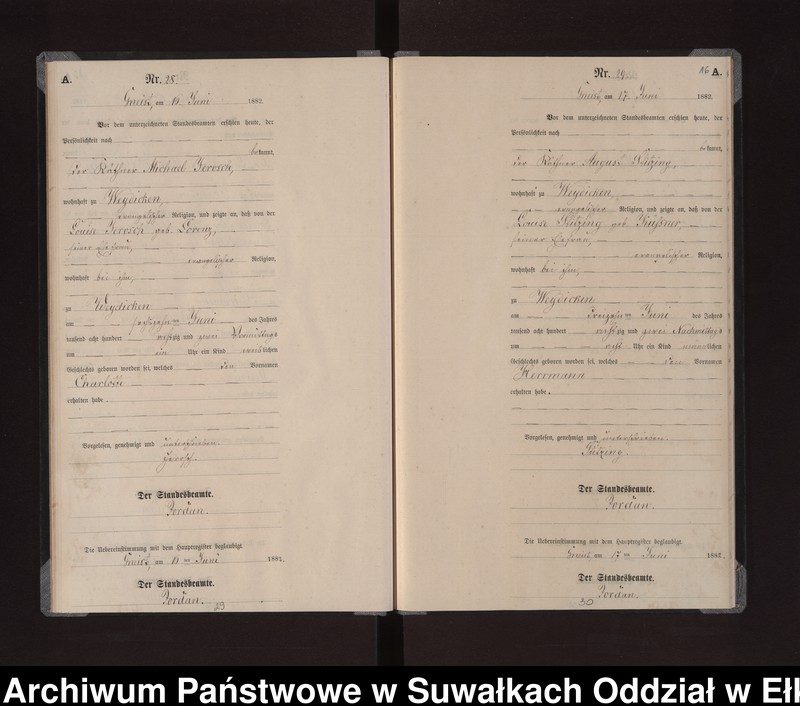 A.
Nr. 28.
am Juni 1882.
Vor dem unterzeichneten Standesbeamten erschien heute, der
Persönlichkeit nach
bekannt,
der Käthner Michael Jerosch,
wohnhaft zu Weydicken,
evangelischer Religion, und zeigte an, daß von der
Louise Jerosch geb. Lorenz,
seiner Ehefrau,
evangelischer Religion,
wohnhaft bei ihm,
zu Weydicken
am ten Juni des Jahres
tausend acht hundert achtzig und zwei Vormittags
um ein Uhr ein Kind weiblichen
Geschlechts geboren worden sei, welches den Vornamen
Charlotte
erhalten habe.
Vorgelesen, genehmigt und unterschrieben.
Jerosch.
Der Standesbeamte.
Jordan.
Die Uebereinstimmung mit dem Hauptregister beglaubigt.
am ten Juni 1882.
Der Standesbeamte.
Jordan.
29
16 A.
Nr. 29
am 17. Juni 1882.
Vor dem unterzeichneten Standesbeamten erschien heute, der
Persönlichkeit nach
bekannt,
der Käthner August
wohnhaft zu Weydicken,
evangelischer Religion, und zeigte an, daß von der
Louise geb.
seiner Ehefrau,
evangelischer Religion,
wohnhaft bei ihm,
zu Weydicken
am ten Juni des Jahres
tausend acht hundert achtzig und zwei Nachmittags
um acht Uhr ein Kind männlichen
Geschlechts geboren worden sei, welches den Vornamen
Herrmann
erhalten habe.
Vorgelesen, genehmigt und unterschrieben.
Der Standesbeamte.
Jordan.
Die Uebereinstimmung mit dem Hauptregister beglaubigt.
am 17 ten Juni 1882.
Der Standesbeamte.
Jordan.
30
Archiwum Państwowe w Suwałkach Oddział w Ełk